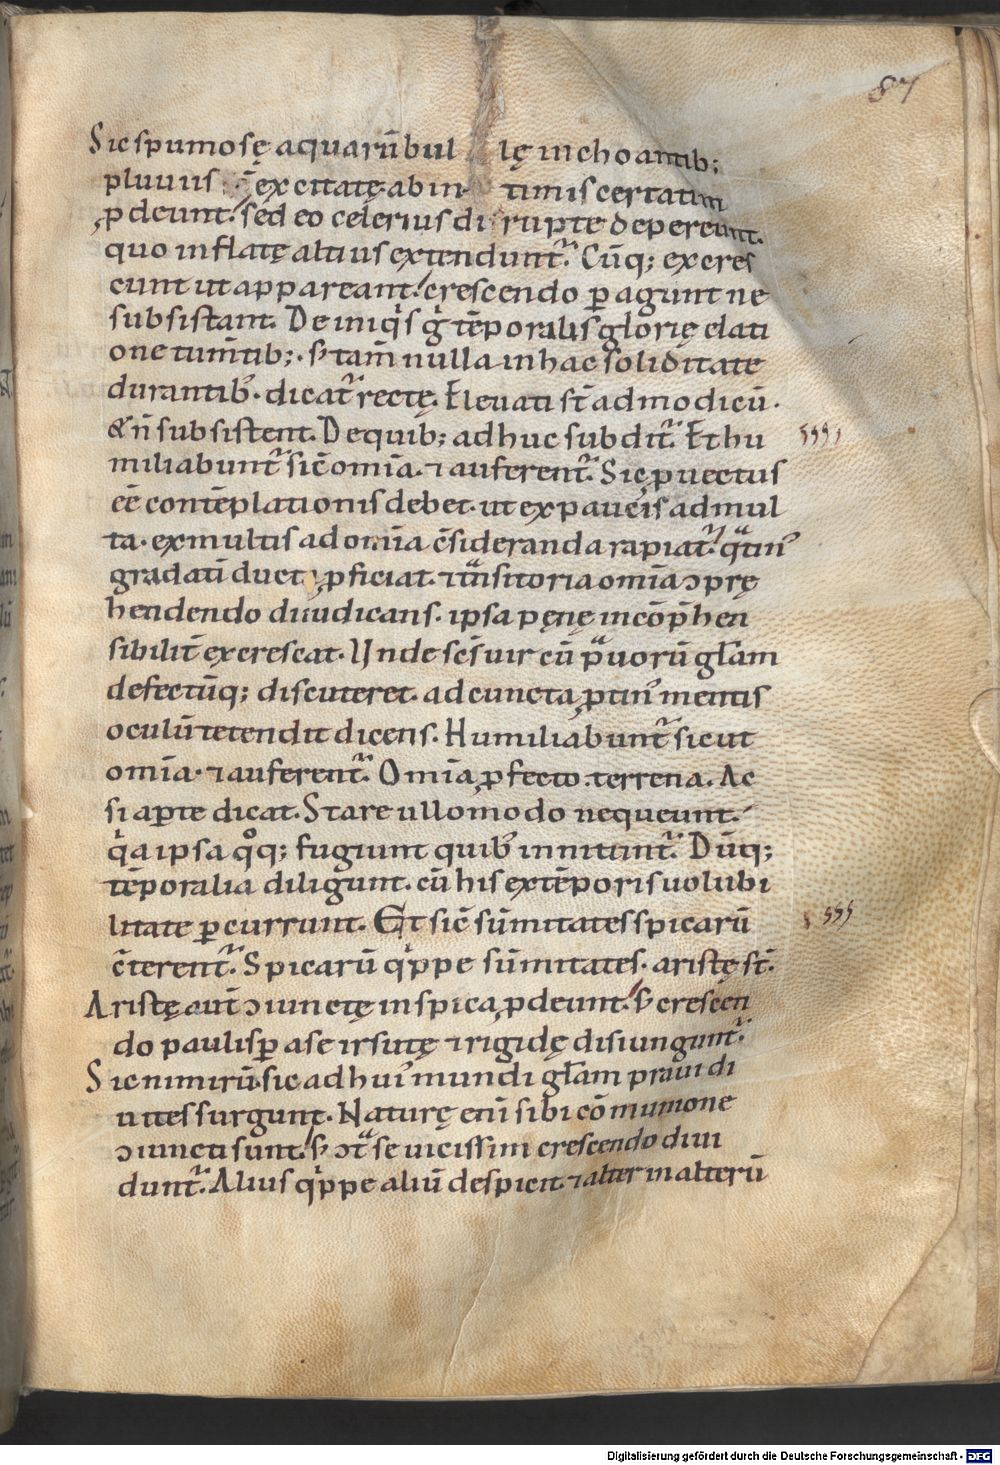 87
Sic spumosę aquarū bul lę inchoantib;
pluuiis excitatę ab in timis certatim
ꝓdeunt. sed eo celerius disruptę depereunt.
quo inflatę altius extendunt᷑. Cūq; excres
cunt ut appareant. crescendo ꝑagunt ne
subsistant. De iniqͥs g̊ tēporalis glorię elati
one tum̄tib;. s; tam̄ nulla in hac soliditate
durantib᷒. dicat᷑ rectę. Eleuati st̄ ad modicū.
& n̄ subsistent. De quib; adhuc subdit᷑. Et hu
miliabunt᷑ sic̄ om̄ia. ⁊ auferent᷑. Sic ꝓuectus
eē contēplationis debet. ut ex paucis ad mul
ta. ex multis ad om̄ia c̄sideranda rapiat᷑. qͣtin᷒
gradati duct ꝓficiat. ⁊ tͣnsitoria om̄ia ɔprę
hendendo diiudicans. ipsa pęnę incōp̄hen
sibilit̄ excrescat. Unde sc̄s uir cū pͣuorū gl̄am
defectūq; discuteret. ad cuncta ꝓtin᷒ mentis
oculū tetendit dicens. Humiliabunt᷑ sicut
om̄ia. ⁊ auferent᷑. Om̄ia ꝓfecto terrena. Ac
si aꝑte dicat. Stare ullomodo nequeunt.
qͥa ipsa qͦq; fugiunt quib᷒ innitunt᷑. Dūq;
tēporalia diligunt. cū his ex tēporis uolubi
litate ꝑcurrunt. Et sic̄ sūmitates spicarū
c̄terent᷑. Spicarū qͥppe sūmitates. aristę st̄.
Aristę aut̄ ɔiunctę in spica ꝓdeunt. s; crescen
do paulisꝑ a se irsutę ⁊ rigidę disiungunt᷑.
Sic nimirū sic ad hui᷒ mundi gl̄am praui di
uites surgunt. Naturę eni sibi cōmunione
ɔiuncti sunt. s; ɔtͣ se uicissim crescendo diui
dunt᷑. Alius qͥppe aliū despicit. ⁊ alter in alterū
Digitalisierung gefördert durch die Deutsche Forschungsgemeinschaft - DFG